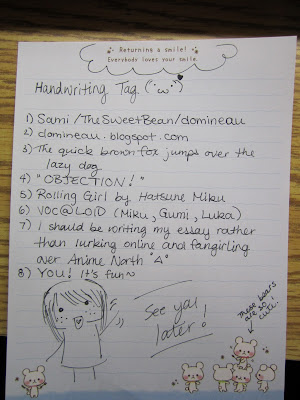 Returning a smile!
Everybody loves your smile.
Handwriting Tag (´・ω・`)
1) Sami/TheSweetBean/domineau
2) domineau.blogspot.com
3) The quick brown fox jumps over the
lazy dog
4) "OBJECTION!"
5) Rolling Girl by Hatsune Miku
6) VOC@LOID (Miku, Gumi, Luka)
7) I should be writing my essay rather
than lurking online and fangirling
over Anime North °∆°
8) YOU! It's fun~
See ya
later!
These bears
are so
cute!